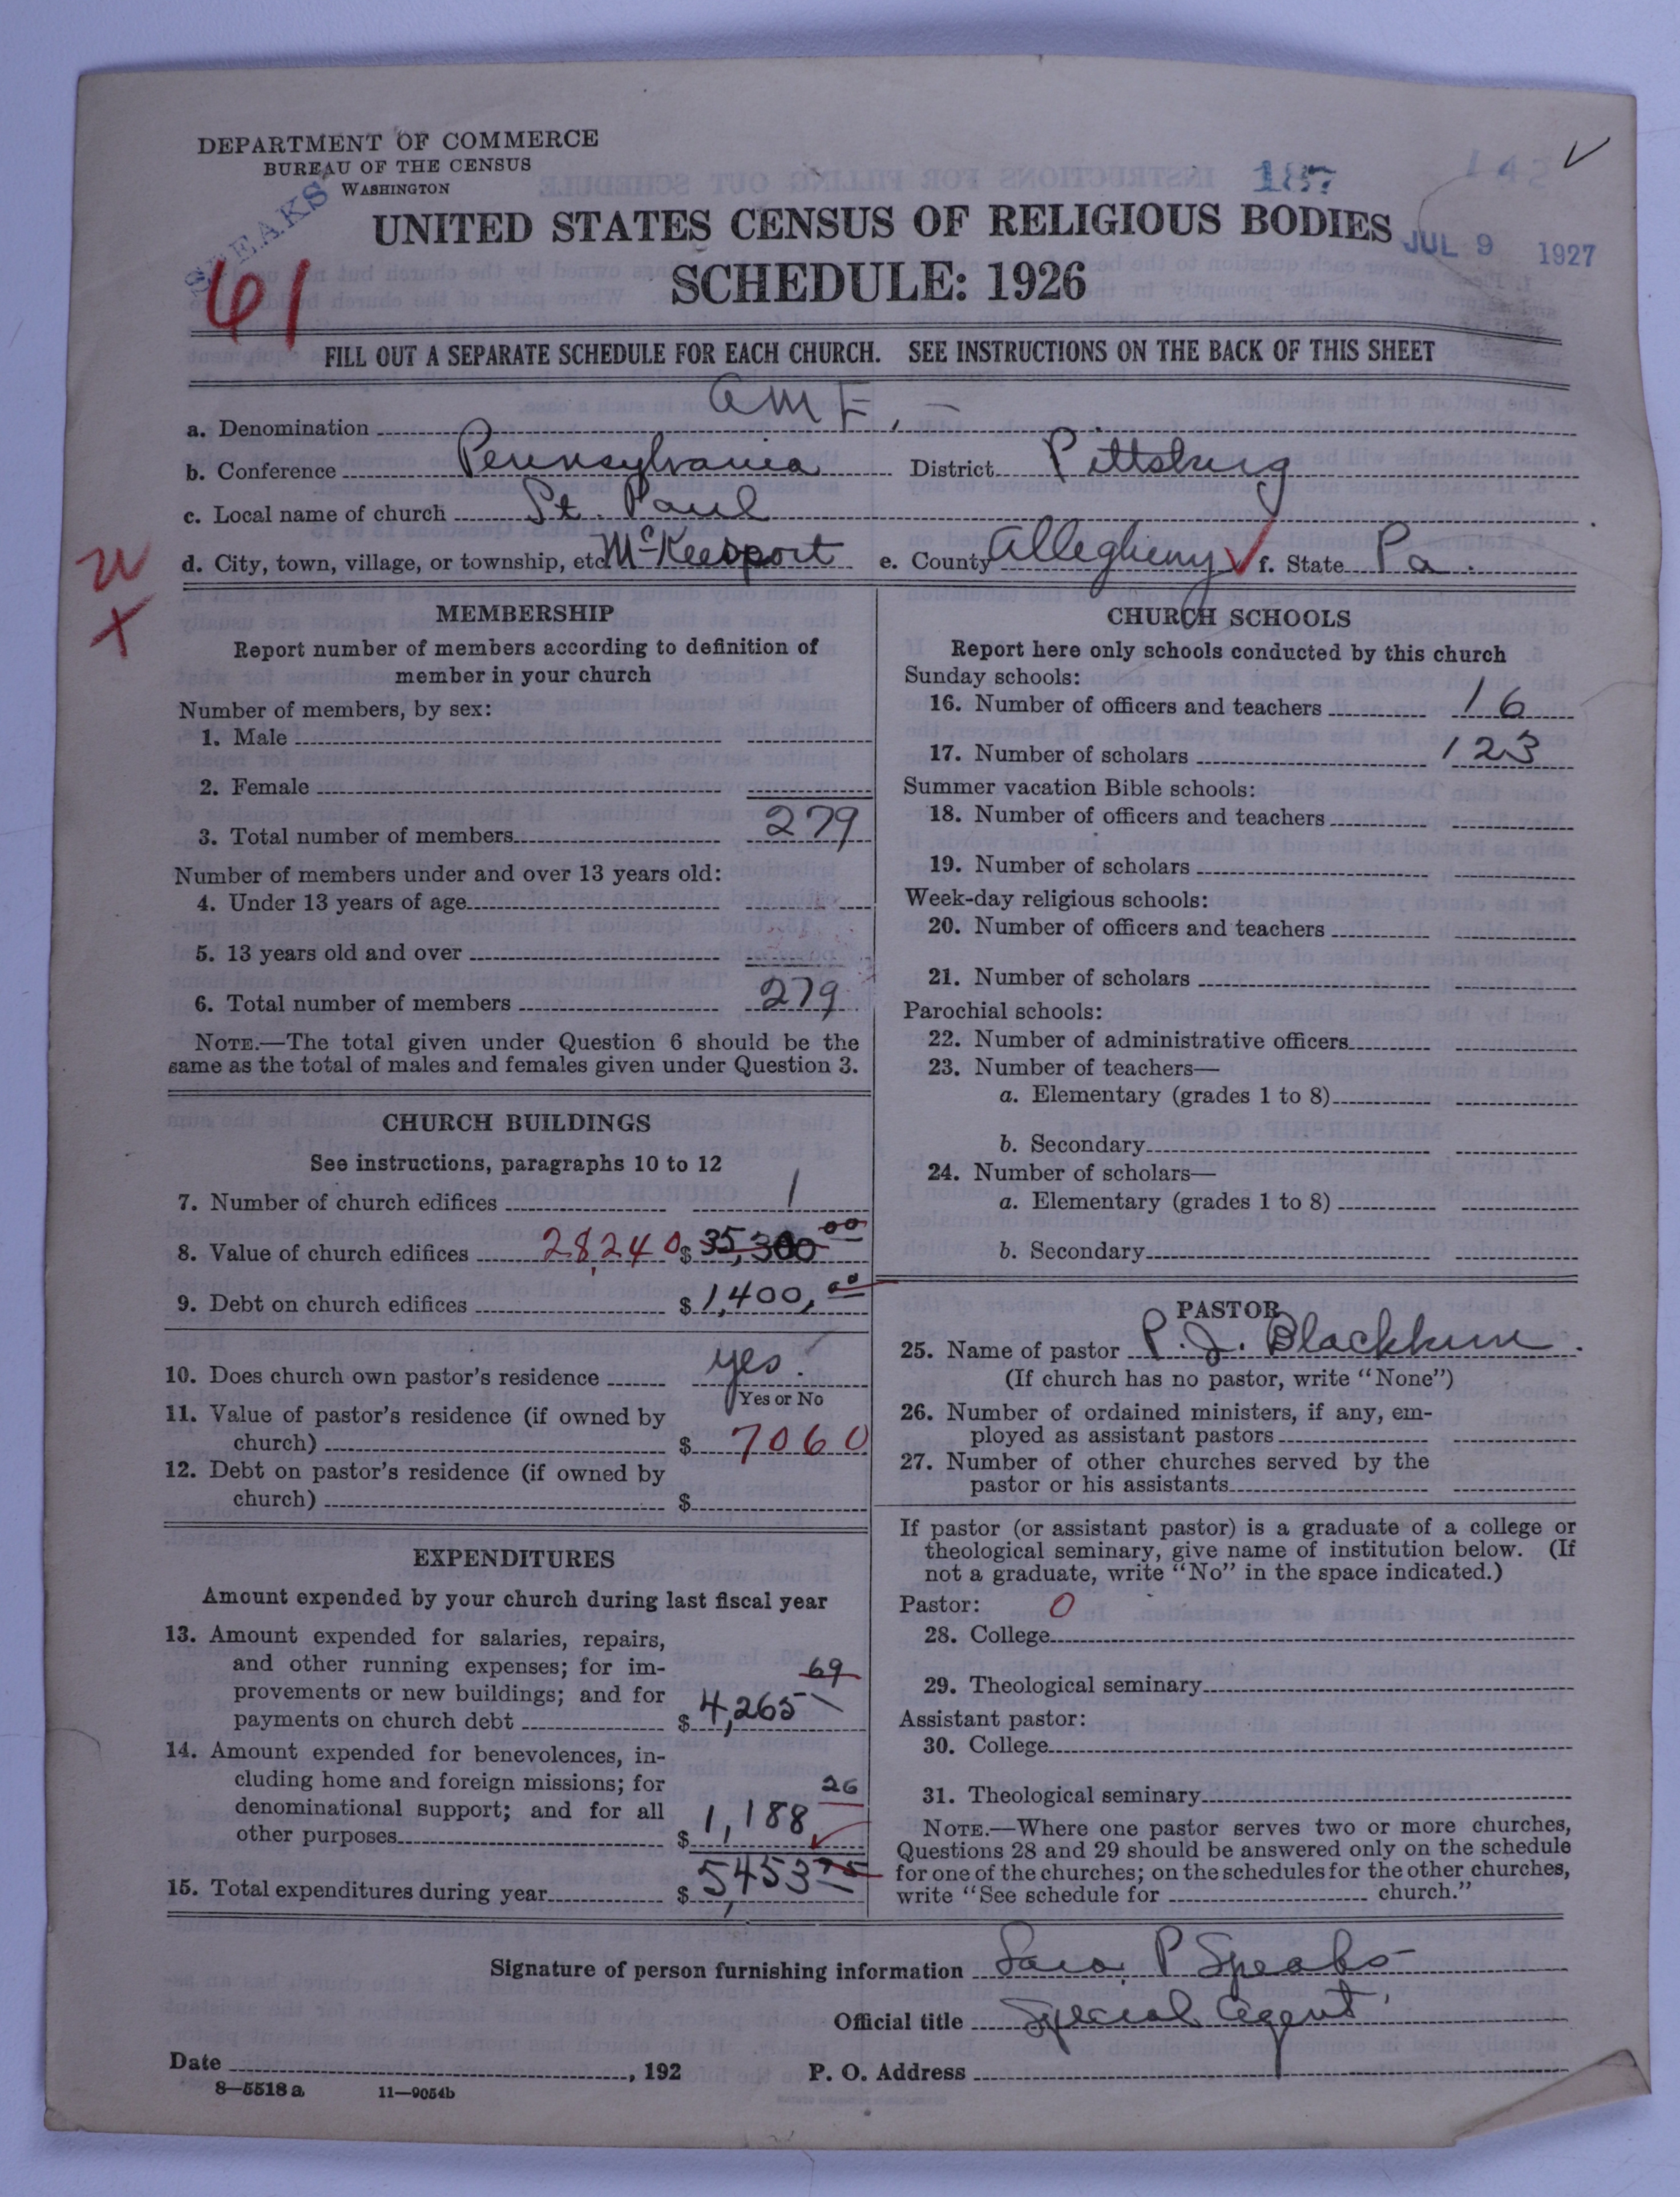 DEPARTMENT OF COMMERCE
BUREAU OF THE CENSUS
WASHINGTON
SPEAKS
187
142
UNITED STATES CENSUS OF RELIGIOUS BODIES
JUL 9 1927
SCHEDULE: 1926
61
FILL OUT A SEPARATE SCHEDULE FOR EACH CHURCH. SEE INSTRUCTIONS ON THE BACK OF THIS SHEET
a. Denomination AME, -
b. Conference Pennsylvania District Pittsburg
c. Local name of church St. Paul
d. City, town, village, or township, etc. McKeesport e. County Allegheny f. State Pa.
MEMBERSHIP
Report number of members according to definition of
member in your church
Number of members, by sex:
1. Male
2. Female
3. Total number of members 279
Number of members under and over 13 years old:
4. Under 13 years of age
5. 13 years old and over
6. Total number of members 279
NOTE.—The total given under Question 6 should be the
same as the total of males and females given under Question 3.
CHURCH BUILDINGS
See instructions, paragraphs 10 to 12
7. Number of church edifices 1
8. Value of church edifices 28,240 $ 35,300 00
9. Debt on church edifices $ 1,400, 00
10. Does church own pastor's residence yes.
Yes or No
11. Value of pastor's residence (if owned by
church) $ 7060
12. Debt on pastor's residence (if owned by
church) $
EXPENDITURES
Amount expended by your church during last fiscal year
13. Amount expended for salaries, repairs,
and other running expenses; for im-
provements or new buildings; and for
payments on church debt $ 4,265 69
14. Amount expended for benevolences, in-
cluding home and foreign missions; for
denominational support; and for all
other purposes $ 1,188 26
15. Total expenditures during year $ 5,453 75
CHURCH SCHOOLS
Report here only schools conducted by this church
Sunday schools:
16. Number of officers and teachers 16
17. Number of scholars 123
Summer vacation Bible schools:
18. Number of officers and teachers
19. Number of scholars
Week-day religious schools:
20. Number of officers and teachers
21. Number of scholars
Parochial schools:
22. Number of administrative officers
23. Number of teachers—
a. Elementary (grades 1 to 8)
b. Secondary
24. Number of scholars—
a. Elementary (grades 1 to 8)
b. Secondary
PASTOR
25. Name of pastor P. J. Blackburn.
(If church has no pastor, write "None")
26. Number of ordained ministers, if any, em-
ployed as assistant pastors
27. Number of other churches served by the
pastor or his assistants
If pastor (or assistant pastor) is a graduate of a college or
theological seminary, give name of institution below. (If
not a graduate, write "No" in the space indicated.)
Pastor: 0
28. College
29. Theological seminary
Assistant pastor:
30. College
31. Theological seminary
NOTE.—Where one pastor serves two or more churches,
Questions 28 and 29 should be answered only on the schedule
for one of the churches; on the schedules for the other churches,
write "See schedule for church."
Signature of person furnishing information Sara P Speaks
Official title Special Agent
Date , 192 P. O. Address
8—5518a 11—9054b